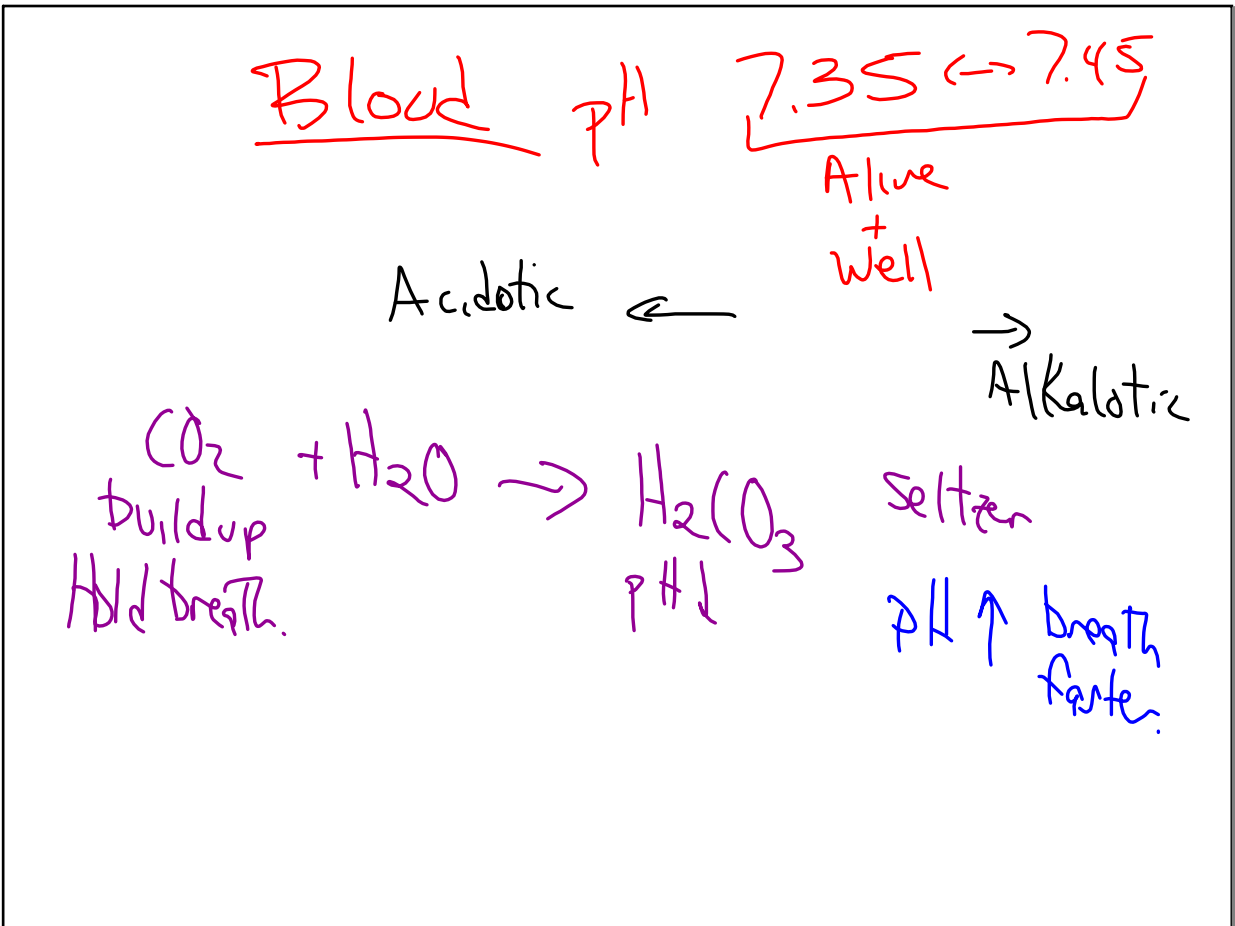 Blood pH 7.35 ↔ 7.45
Alive
+
Well
Acidotic ←
→
Alkalotic
CO₂ + H₂O → H₂CO₃ seltzer
buildup
Hold breath.
pH↓
pH ↑ breath
faster.